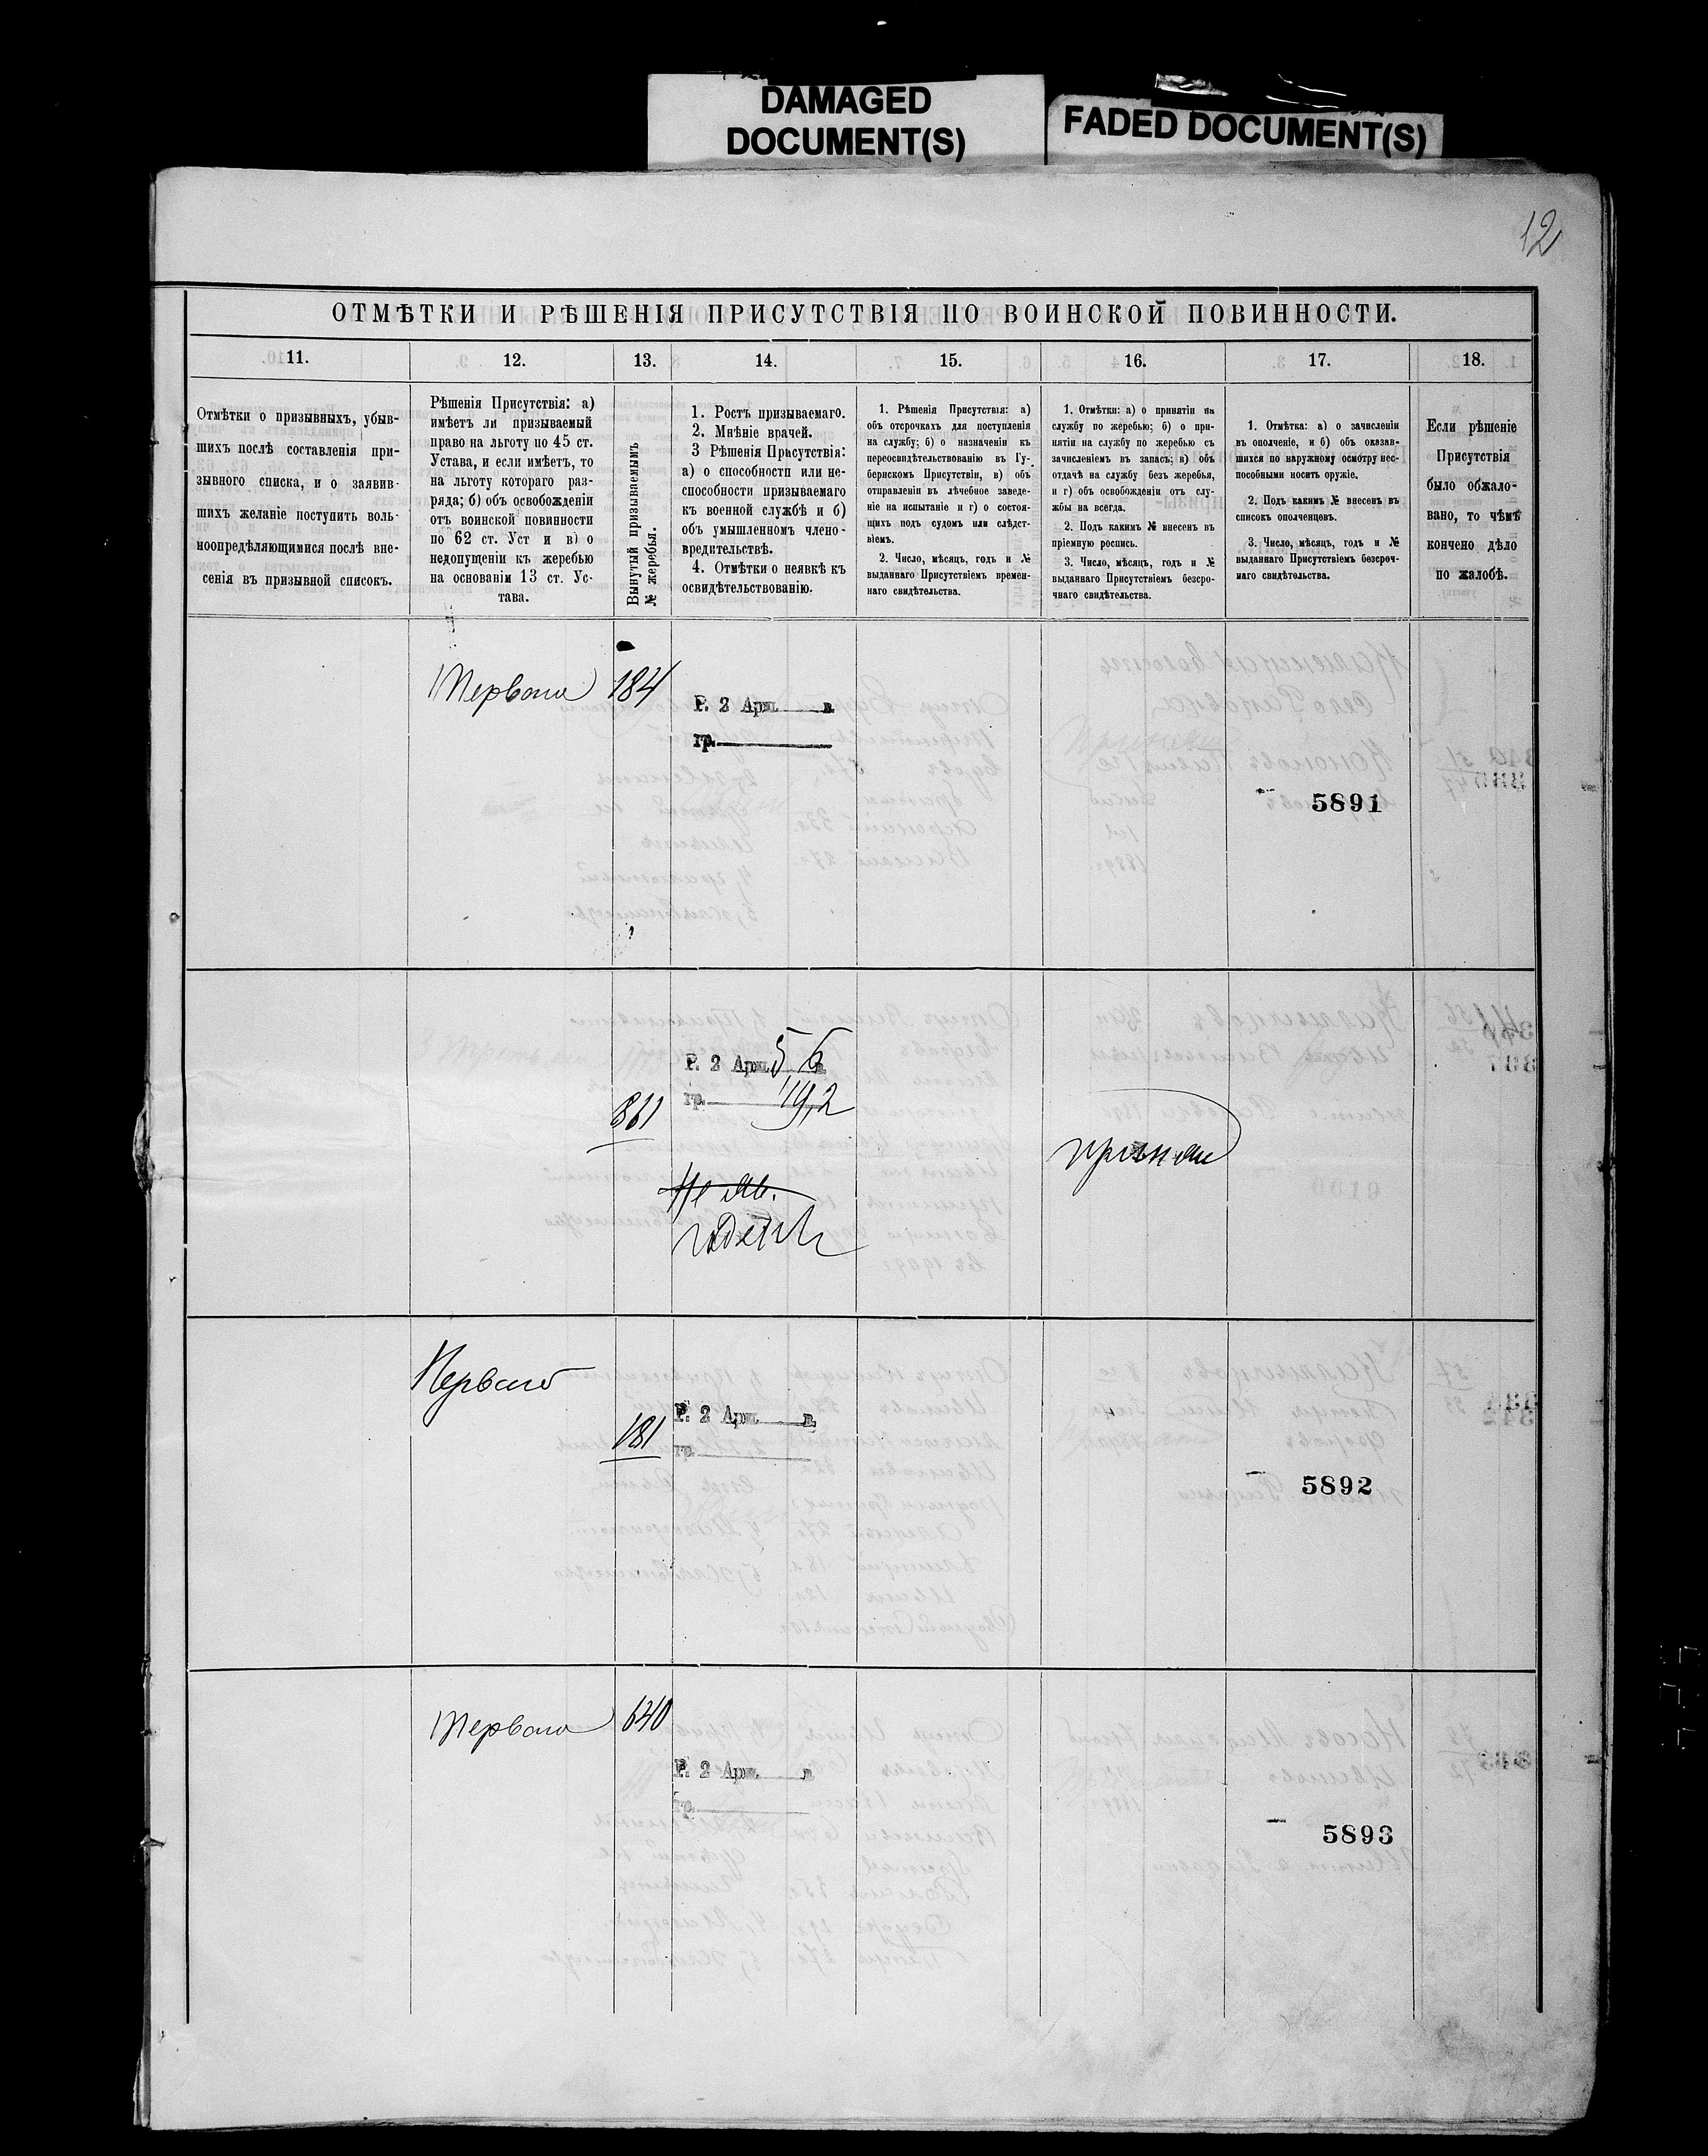 DAMAGED
DOCUMENT(S)
FADED DOCUMENT(S)
12
ОТМѢТКИ И РѢШЕНІЯ ПРИСУТСТВІЯ ПО ВОИНСКОЙ ПОВИННОСТИ.
11.
12.
13.
14.
15.
16.
17.
18.
Отмѣтки о призывныхъ, убыв-
шихъ послѣ составленія при-
зывного списка, и о заявив-
шихъ желаніе поступить воль-
ноопредѣляющимися послѣ вне-
сенія въ призывной списокъ.
Рѣшенія Присутствія: а)
имѣетъ ли призываемый
право на льготу по 45 ст.
Устава, и если имѣетъ, то
на льготу котораго раз-
ряда; б) объ освобожденіи
отъ воинской повинности
по 62 ст. Уст и в) о
недопущеніи къ жеребью
на основаніи 13 ст. Ус-
тава.
Вынутый призываемымъ
№ жеребья.
1. Ростъ призываемаго.
2. Мнѣніе врачей.
3 Рѣшенія Присутствія:
а) о способности или не-
способности призываемаго
къ военной службѣ и б)
объ умышленномъ члено-
вредительствѣ.
4. Отмѣтки о неявкѣ къ
освидѣтельствованію.
1. Рѣшенія Присутствія: а)
объ отсрочкахъ для поступленія
на службу; б) о назначеніи къ
переосвидѣтельствованію въ Гу-
бернскомъ Присутствіи, в) объ
отправленіи въ лѣчебное заведе-
ніе на испытаніе и г) о состоя-
щихъ подъ судомъ или слѣдст-
віемъ.
2. Число, мѣсяцъ, годъ и №
выданнаго Присутствіемъ времен-
наго свидѣтельства.
1. Отмѣтки: а) о принятіи на
службу по жеребью; б) о при-
нятіи на службу по жеребью съ
зачисленіемъ въ запасъ; в) объ
отдачѣ на службу безъ жеребья,
и г) объ освобожденіи отъ слу-
жбы на всегда.
2. Подъ какимъ № внесенъ въ
пріемную роспись.
3. Число, мѣсяцъ, годъ и №
выданнаго Присутствіемъ безсро-
чнаго свидѣтельства.
1. Отмѣтка: а) о зачисленіи
въ ополченіе, и б) объ оказав-
шихся по наружному осмотру нес-
пособными носить оружіе.
2. Подъ какимъ № внесенъ въ
списокъ ополченцевъ.
3. Число, мѣсяцъ, годъ и №
выданнаго Присутствіемъ безсроч-
наго свидѣтельства.
Если рѣшеніе
Присутствія
было обжало-
вано, то чѣмъ
кончено дѣло
по жалобѣ.
Перваго
184
Р. 2 Арш. в.
гр.
5891
861
Р. 2 Арш. 5 6/8 в.
гр. 19,2
Не яв.
годенъ
принят
Перваго
181
Р. 2 Арш. в.
гр.
5892
Перваго
640
Р. 2 Арш. в
гр.
5893